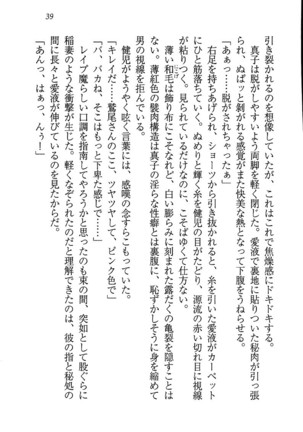 39
引き裂かれるのを想像していたが、これはこれで焦燥感にドキドキする。
真子は脱がしやすいよう両脚を軽く閉じた。愛液で裏地に貼りついた秘肉が引っ張
られ、ぬぱッと剥がれる感覚がまた快美な熱となって下腹をうねらせる。
「あぁっ……脱がされちゃったぁ」
右足を持ちあげられ、ショーツから引き抜かれると、糸を引いた愛液がカーペット
にひと筋落ちていく。ぬめりと輝く糸を健児の目がたどり、源流の赤い切れ目に視線
が粘りつく。見られているだけなのに、こそばゆくて仕方ない。
薄い和毛は飾り布にこそなれど、白い膨らみに刻まれた露だくの亀裂を隠すことは
ない。薄紅色の襞肉構造は真子の淫らな性癖とは裏腹に、恥ずかしそうに身を縮めて
男の視線を拒んでいる。
健児がようやく呟く言葉には、感嘆の念すらこもっていた。
「キレイだ……鷲尾さんのここ、ツヤツヤして、ピンク色で」
「バ、バカね、そこはもっと下卑た感じで……」
レイプ魔らしい口調を指南してやろうかと思ったのも束の間、突如として股ぐらに
稲妻のような衝撃が生じた。軽くなぞられたのだと理解できたのは、彼の指と秘処の
間に、愛液が伸びているのを見たからだ。
「あんっ、はぁっ、んぅー」